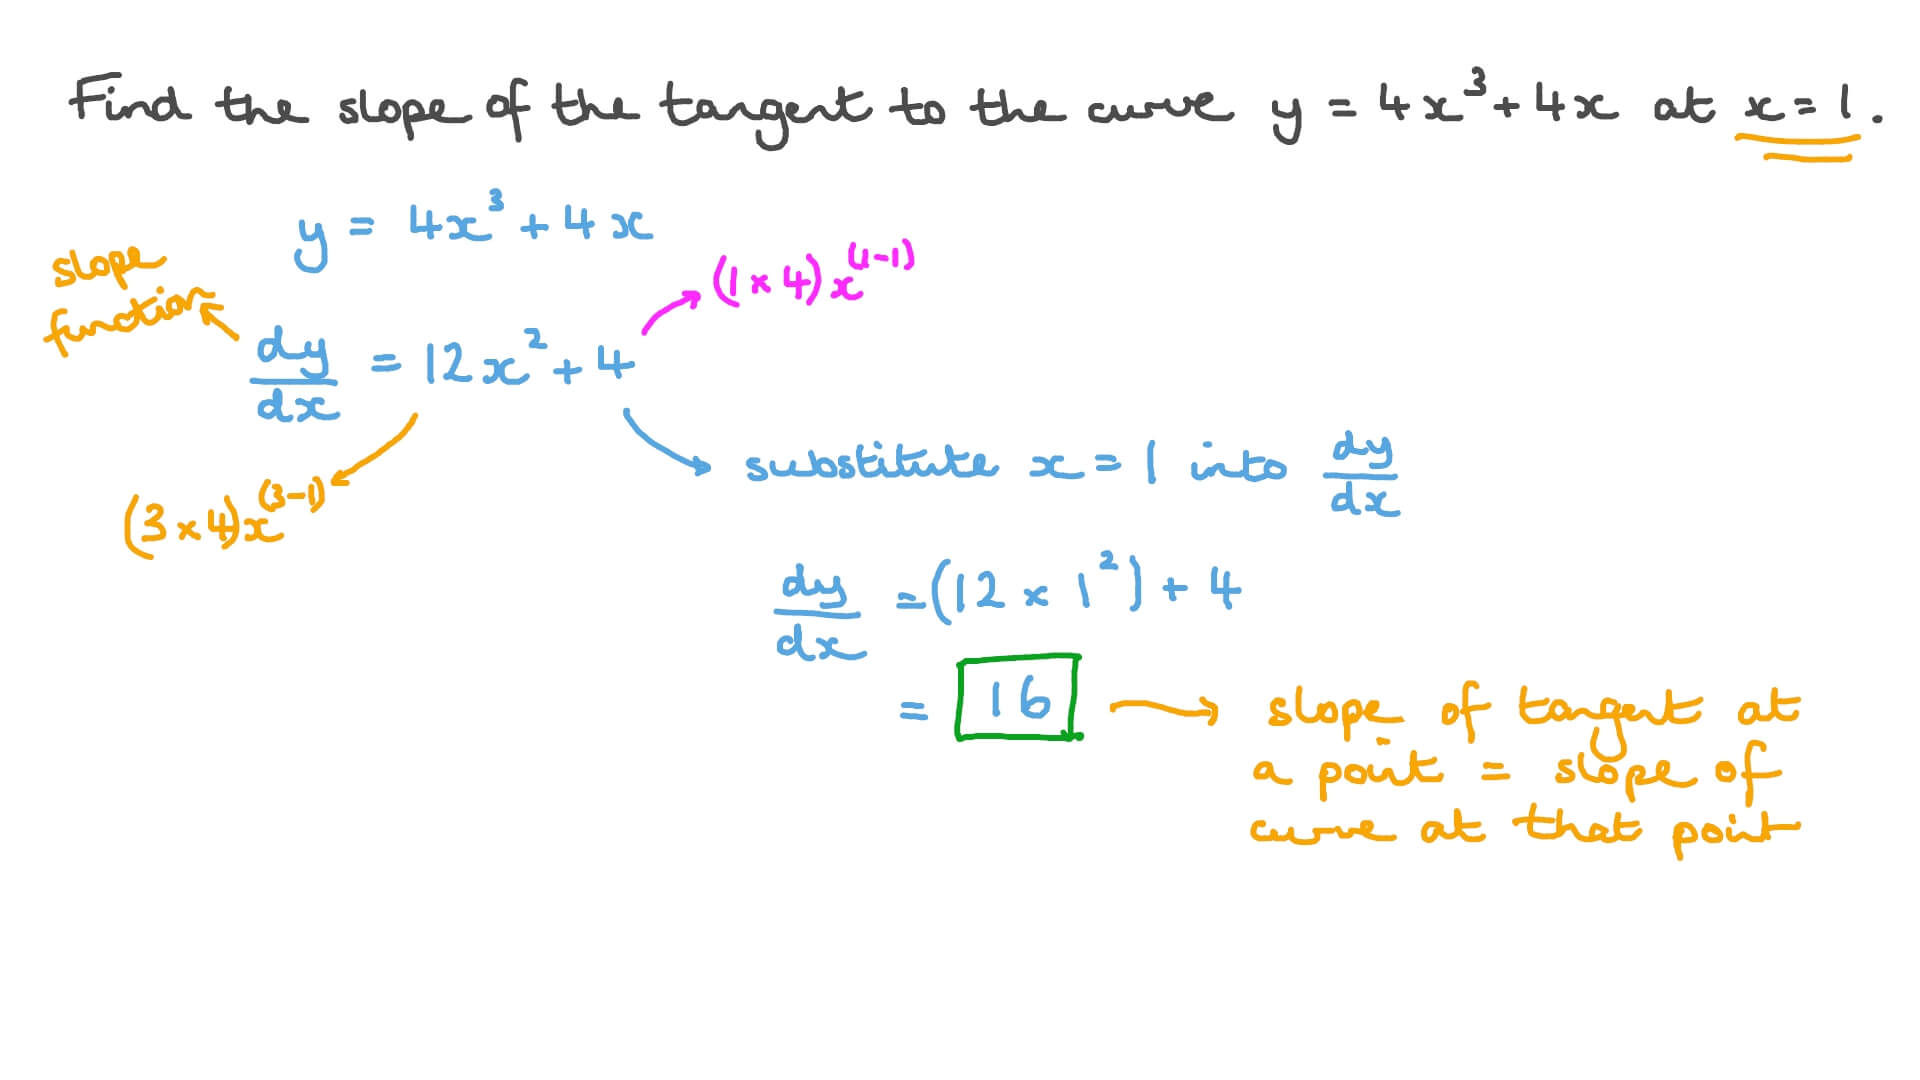 Find the slope of the tangent to the curve y = 4x³ + 4x at x = 1.
y = 4x³ + 4x
slope
function
(1 × 4)x⁽¹⁻¹⁾
dy/dx = 12x² + 4
substitute x = 1 into dy/dx
(3 × 4)x⁽³⁻¹⁾
dy/dx = (12 × 1²) + 4
= 16
slope of tangent at
a point = slope of
curve at that point